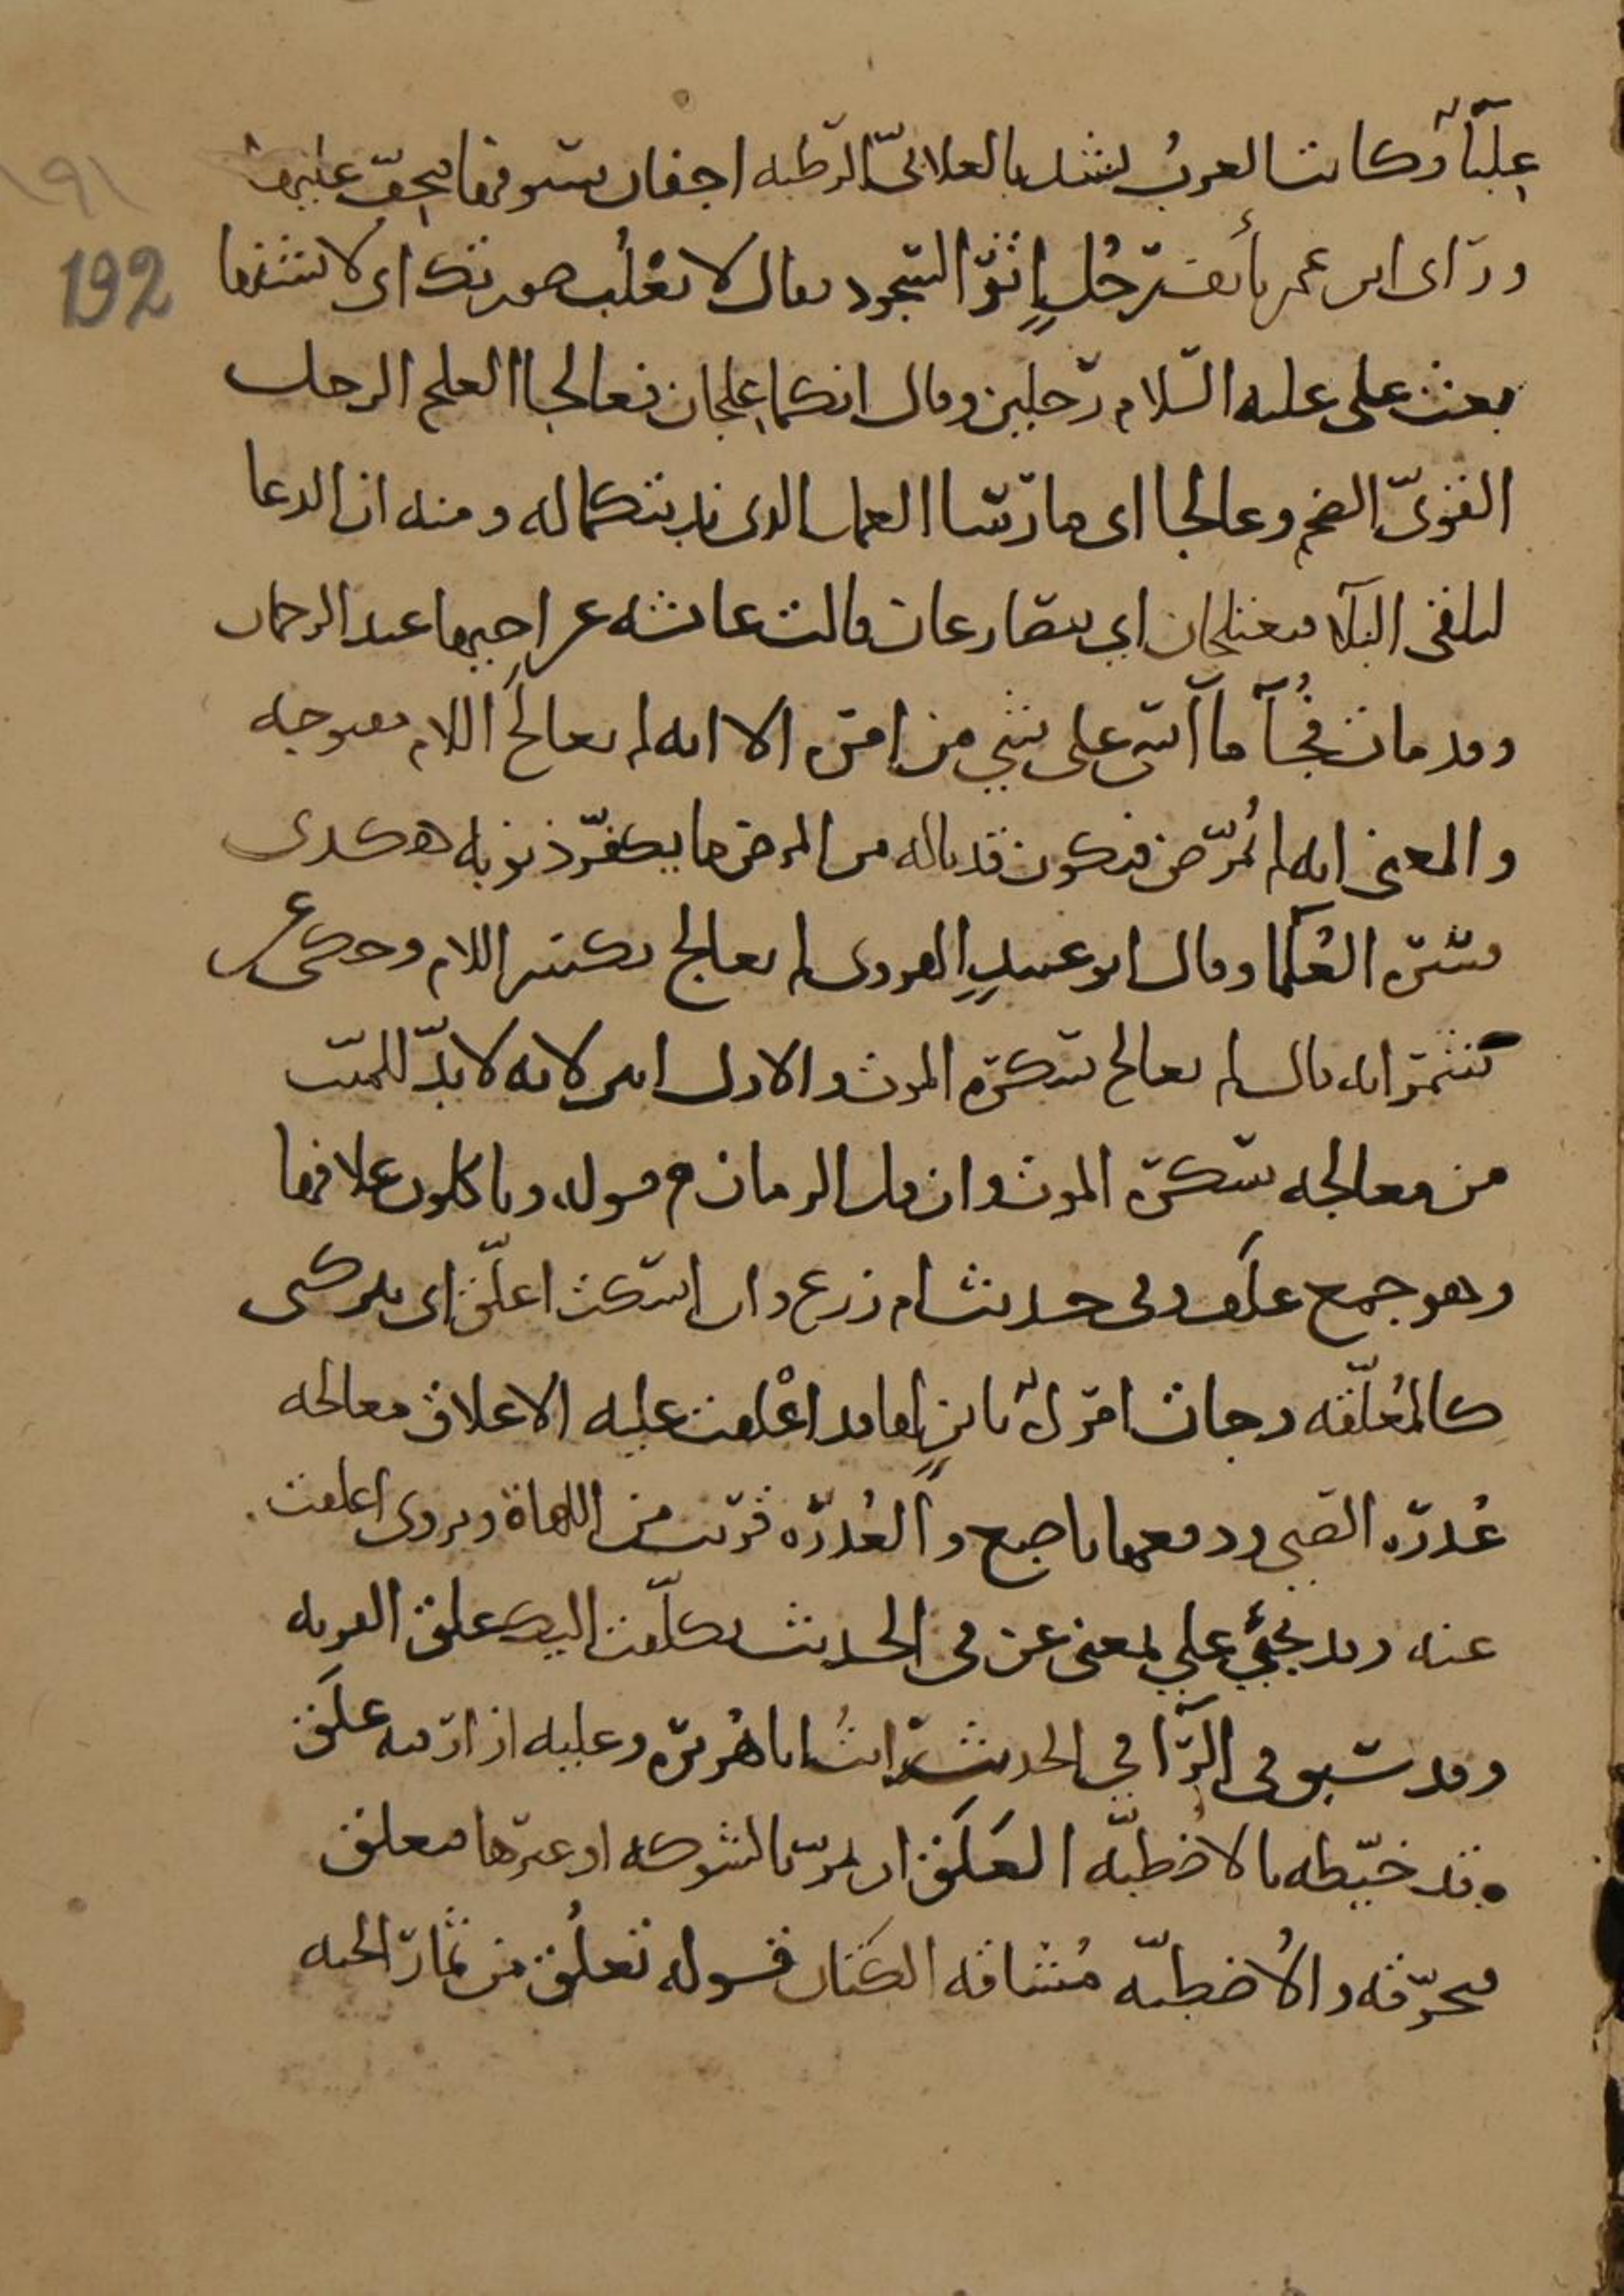 علبآء وكانت العرب تشد بالعلابيّ الرطبه اجفان سيوفها فتجف عليها
ورأى ابن عمر بأنف رجلٍ اثر السجود فقال لا تعْلُب صورتك اى لا تشنها
بعث على عليه السلام رجلين وقال انكما علجان فعالجا العلج الرجل
القوىّ الضخم وعالجا اى مارسا العمل الذى ندبتكما له ومنه ان الدعا
ليلقى البلآء فيعتلجان اي يتصارعان قالت عائشه عن اخيها عبد الرحمان
وقد مات فجُآءَةً ما آسى على شي من امره الا انه لم يعالَج اللام مفتوحه
والمعنى انه لم يُمرّض فيكون قد ناله من المرض ما يكفر ذنوبه هكذى
فسره العُلمآ وقال ابو عبيدٍ الهروى لم يعالج بكسر اللام وحكى عن
شمر انه قال لم يعالج سكره الموت والاول ابين لانه لا بدّ للميت
من معالجه سكره الموت وان قل الزمان م قوله وياكلون علافها
وهو جمع علَف وفى حديث ام زرع وان اسكت اعلّق اى يتركنى
كالمُعلّقه وجات امرأة بابنٍ لها قد اعْلقت عليه الاعلاق معالجه
عُذره الصبى ودفعها باصبع والعُذره قريب من اللهاة ويروى اعلقت
عنه وقد يجئ علي بمعنى عن فى الحديث تكلّفت اليك علق القربه
وقد سبق فى الرآ في الحديث رايتُ ابا هُريره وعليه ازار فيه علَق
وقد خيّطه بالاُضطبّه العَلَق ان يمرّ بالشوكه او غيرها فيعلق
فتخرّقه والاُضطبّه مُشاقه الكتان قوله تعلُق من ثمار الجنه
192
١٩١